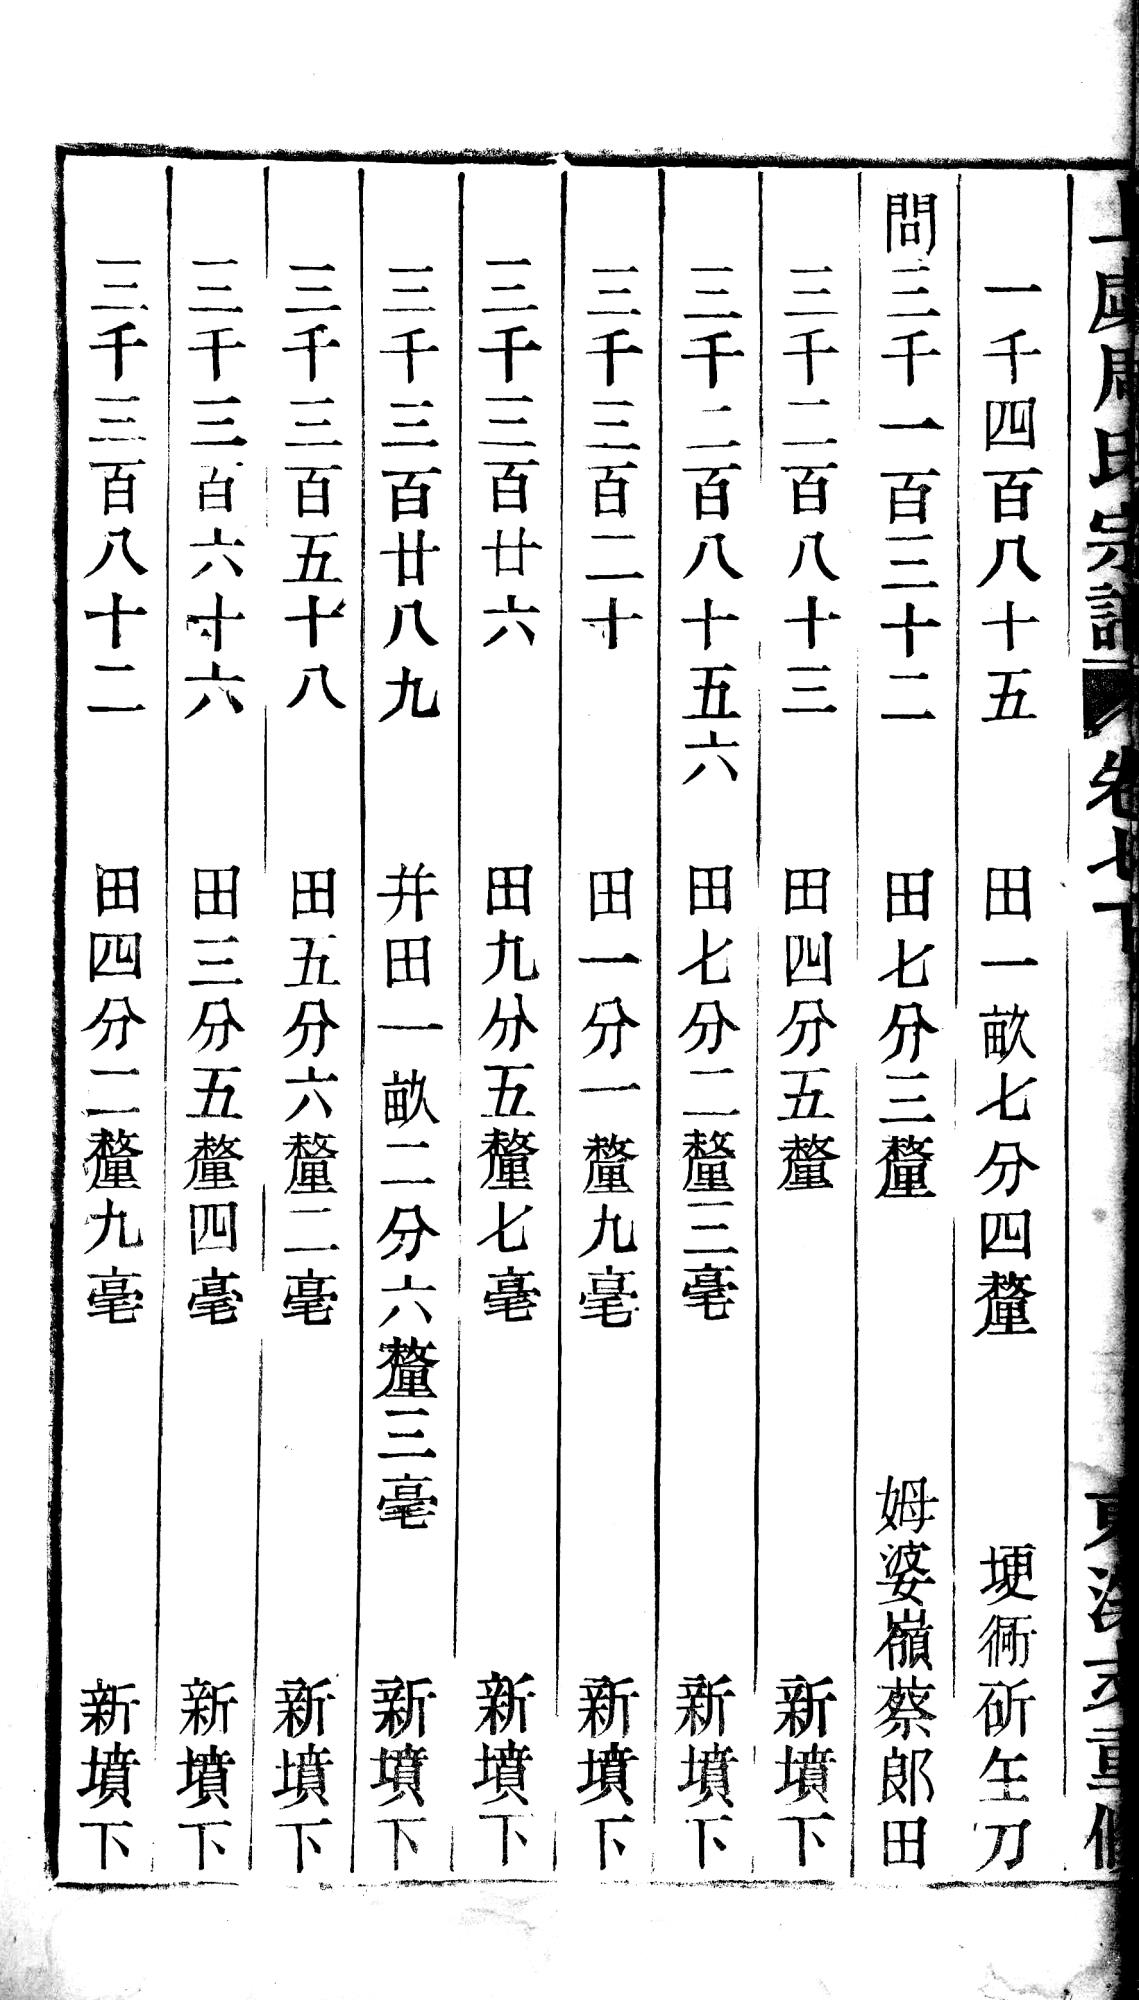 周氏宗譜 卷七下 重修
一千四百八十五 田一畝七分四釐 埂衕斫生刀
問三千一百三十二 田七分三釐 姆婆嶺蔡郎田
三千二百八十三 田四分五釐 新墳下
三千二百八十五六 田七分二釐三毫 新墳下
三千三百二十 田一分一釐九毫 新墳下
三千三百廿六 田九分五釐七毫 新墳下
三千三百廿八九 并田一畝二分六釐三毫 新墳下
三千三百五十八 田五分六釐二毫 新墳下
三千三百六十六 田三分五釐四毫 新墳下
三千三百八十二 田四分二釐九毫 新墳下